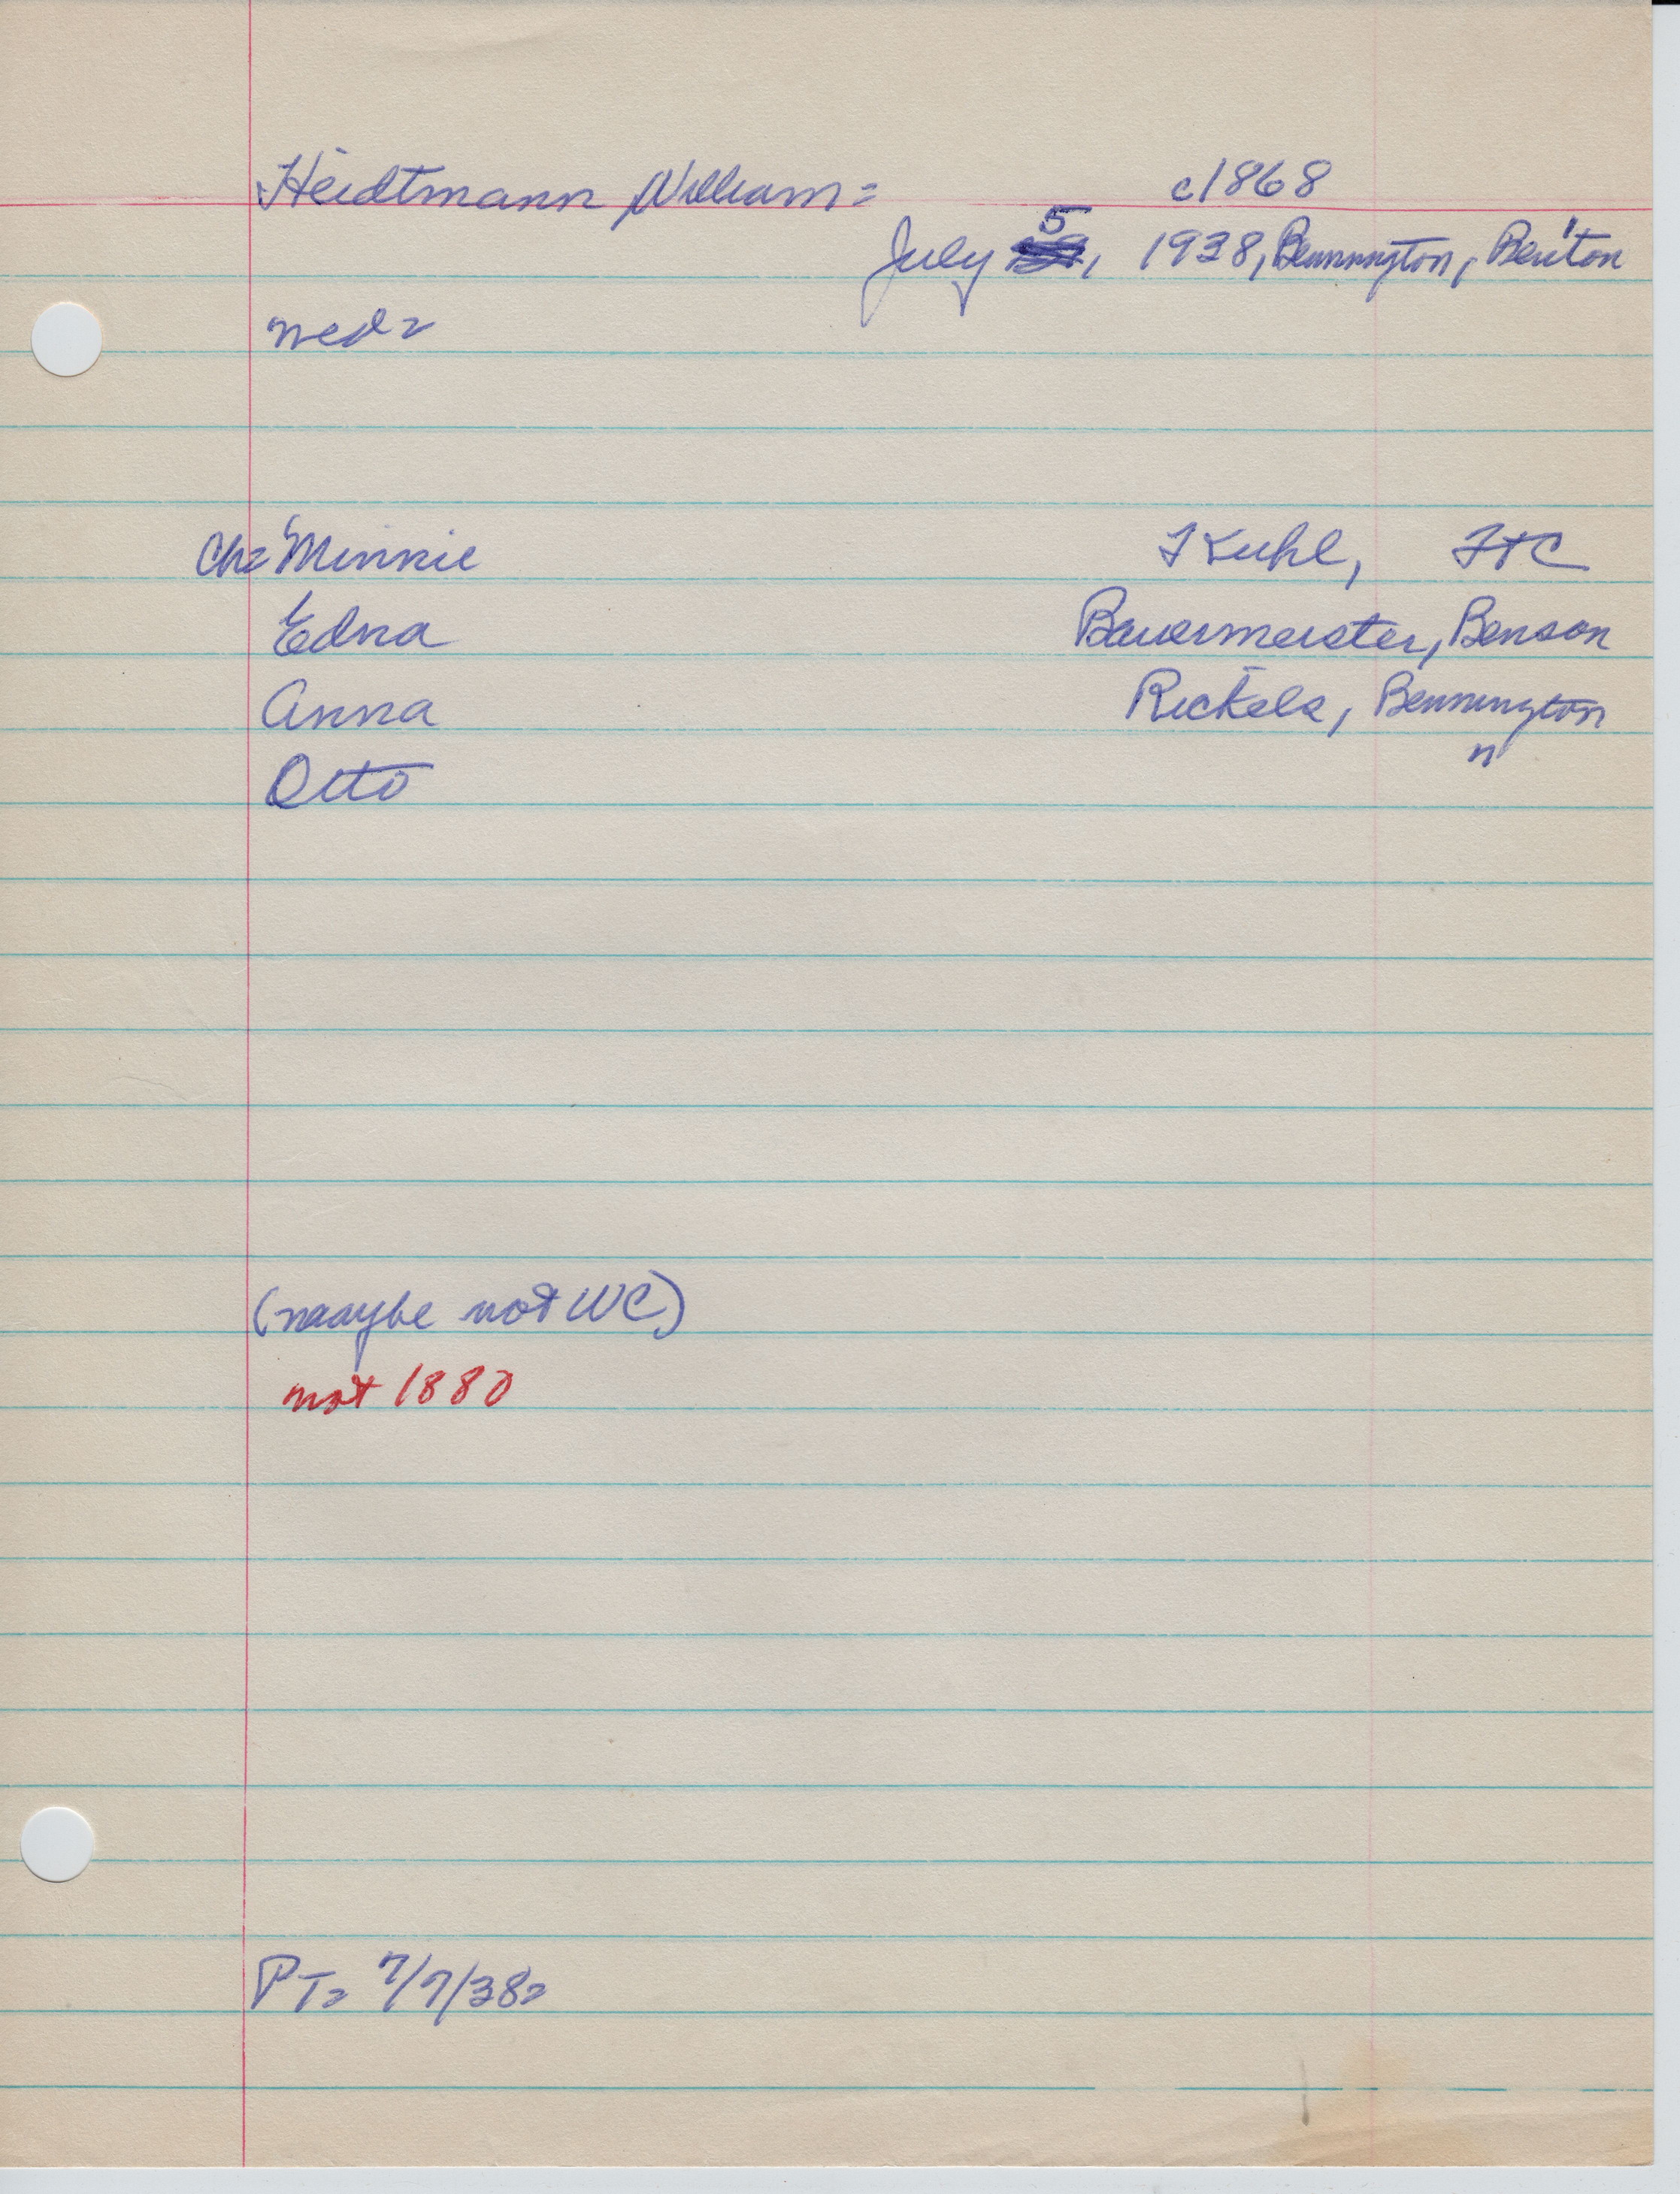 Heidtmann William = c1868
July 5, 1938, Bennington, Benton
med=
Ch= Minnie J Kuhl, JtC
Edna Bauermeister, Benson
Anna Rickels, Bennington
Otto "
(maaybe not WC)
not 1880
PT= 7/7/38=